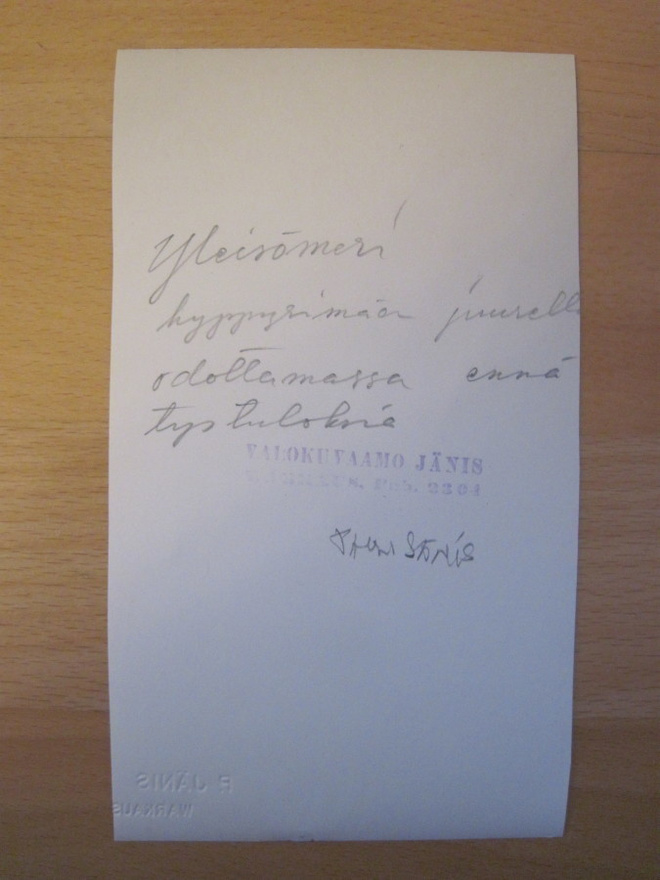 Yleisömeri
hyppyrimäen juurella
odottamassa ennä
tystuloksia
VALOKUVAAMO JÄNIS
WARKAUS. Puh. 2304
P JÄNIS
WARKAUS